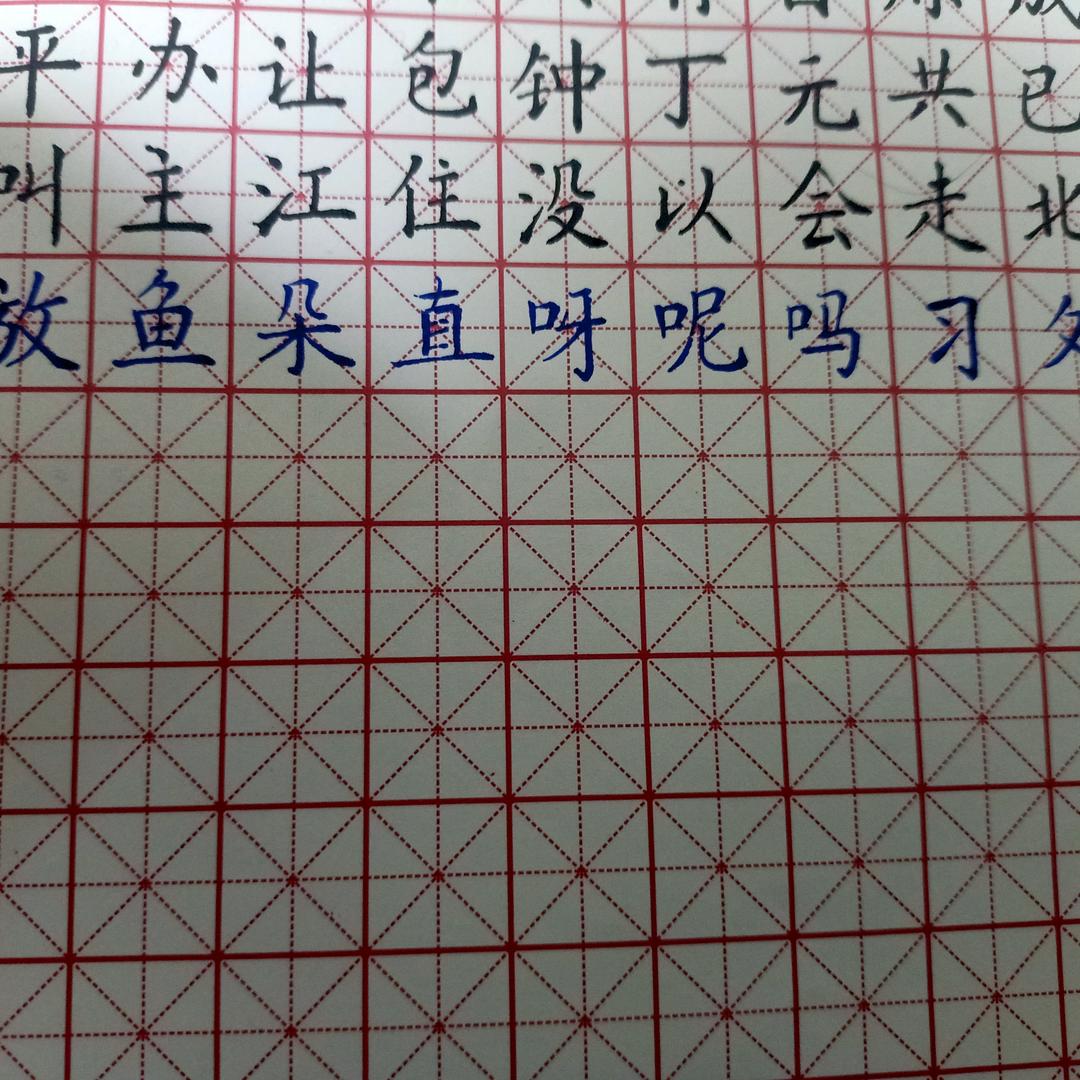 平办让包钟丁元共已
叫主江住没以会走北
放鱼朵直呀呢吗习